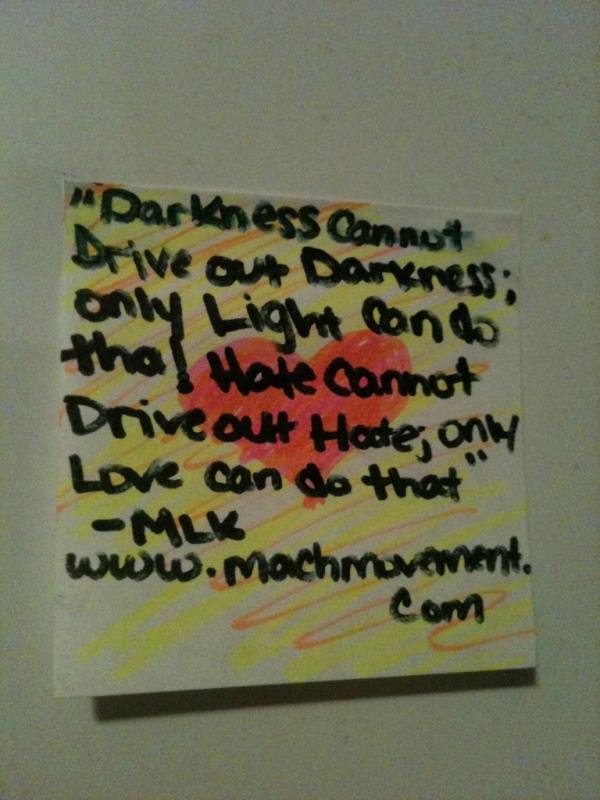 "Darkness Cannot
Drive out Darkness;
only Light Can do
that! Hate Cannot
Drive out Hate; only
Love can do that"
-MLK
www.machmovement.
com